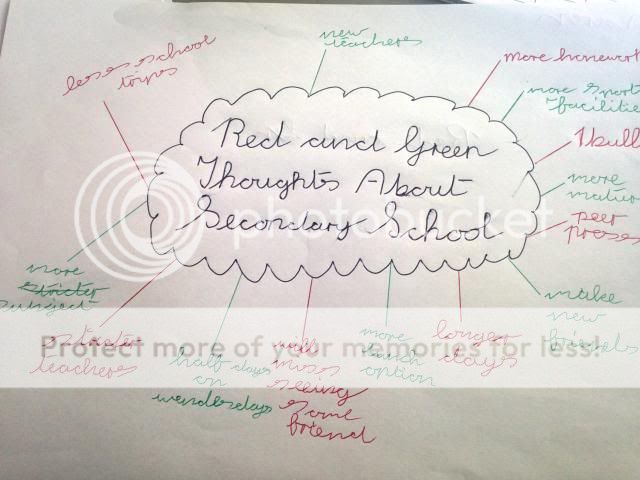 new
teachers
less school
trips
more homework
more sport
facilities
Red and Green
Thoughts About
Secondary School
more
peer
more
stricter
subject
stricter
teachers
half days
on
wendesdays
will
miss
seeing
some
friend
more
lunch
option
longer
days
make
new
friends
photobucket
Protect more of your memories for less!